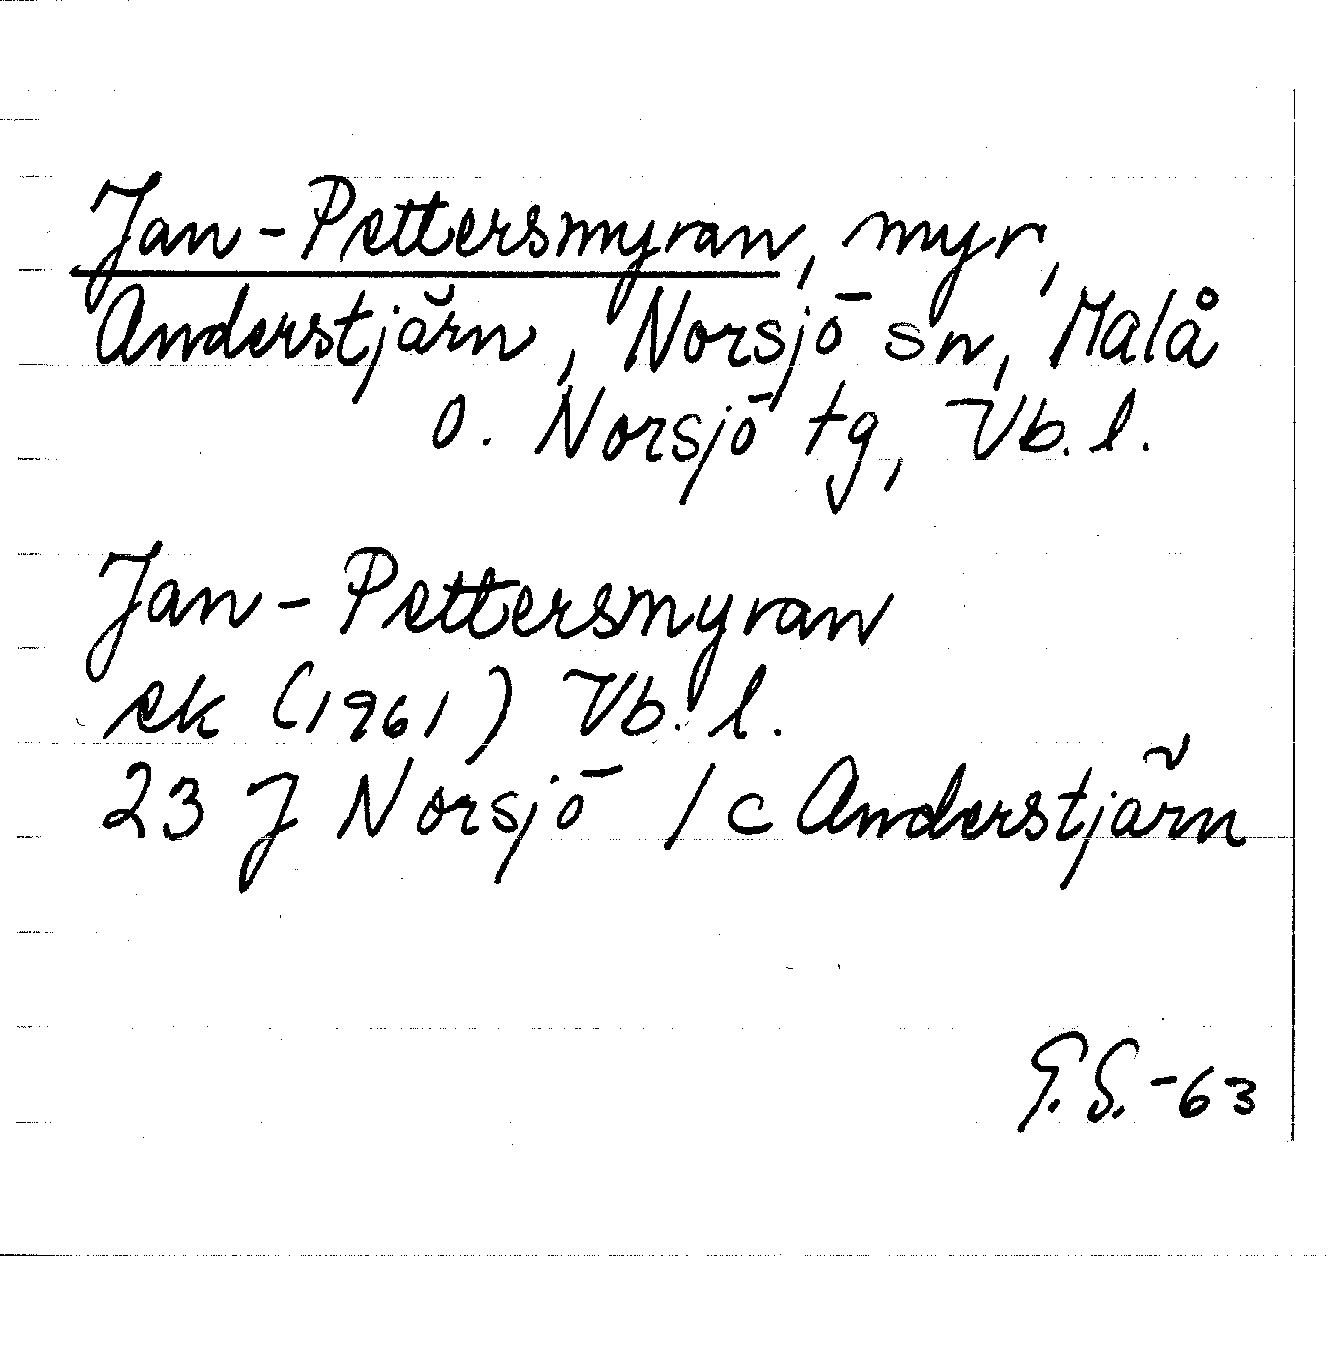 Jan-Pettersmyran, myr,
Anderstjärn, Norsjö sn, Malå
o. Norsjö tg, Vb. l.
Jan-Pettersmyran
ek (1961) Vb. l.
23 J Norsjö / c Anderstjärn
G.S. -63